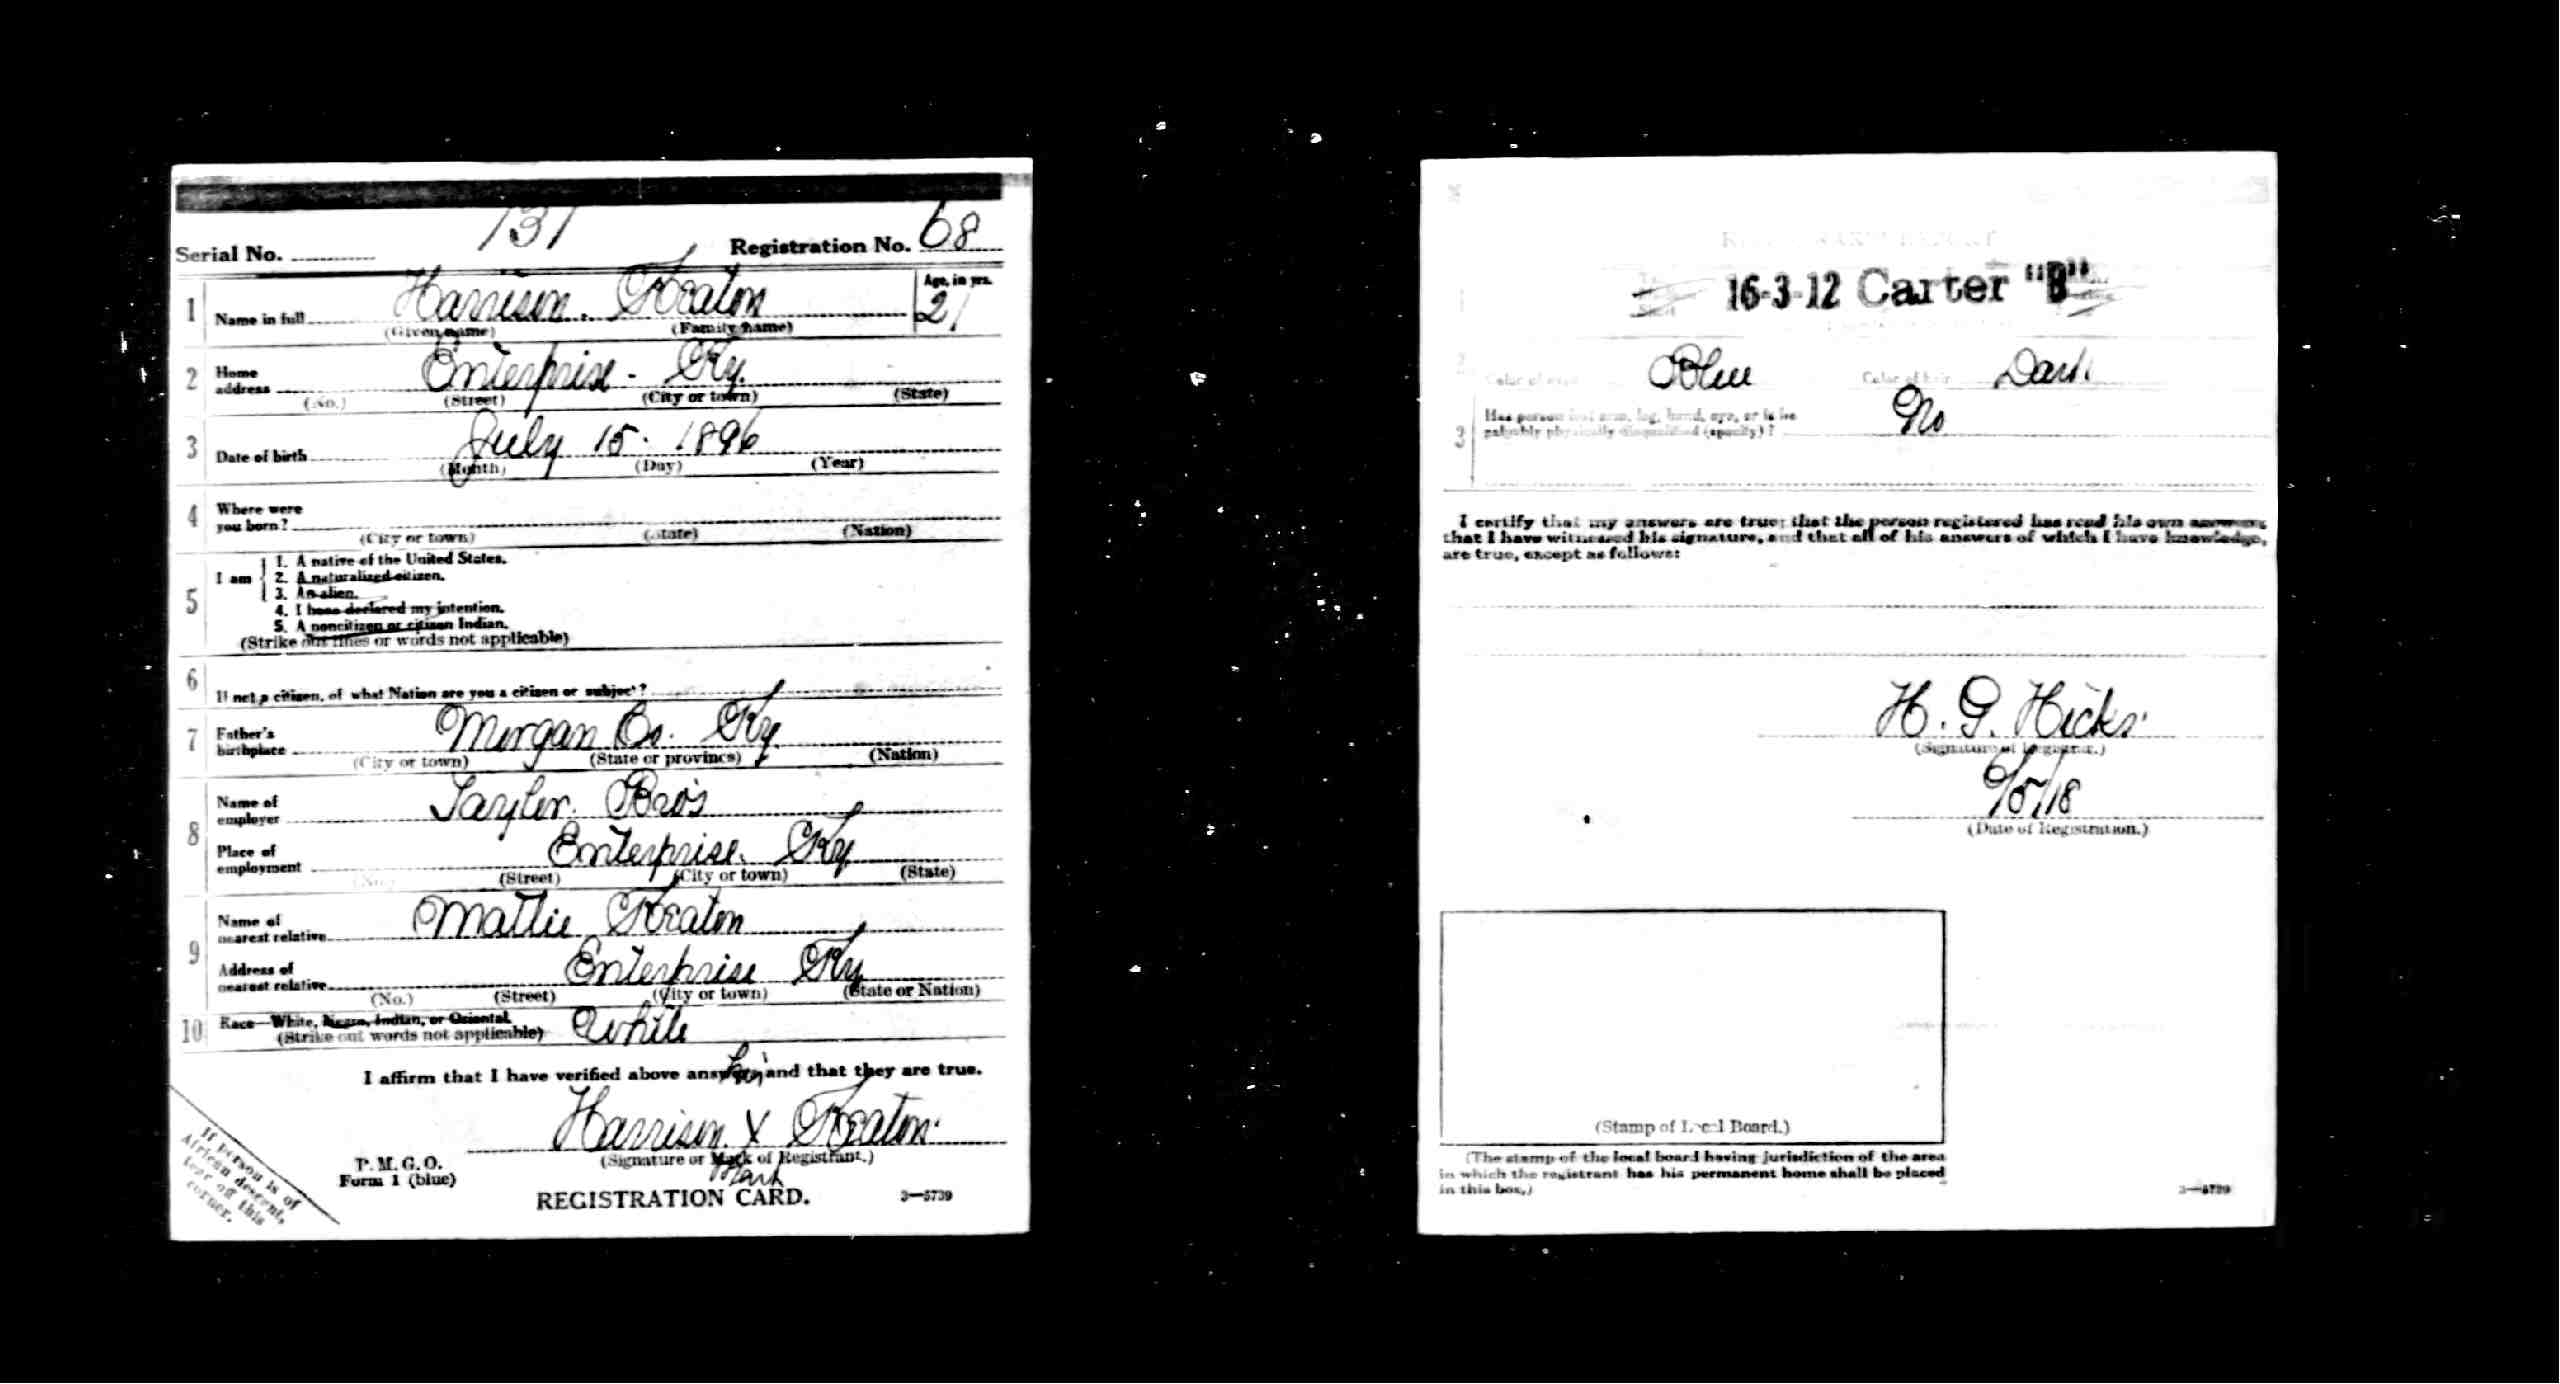 131
Serial No. Registration No. 68
1 Name in full Harrison. Keaton Age, in yrs. 21
(Given name) (Family name)
2 Home address Enterprise - Ky.
(No.) (Street) (City or town) (State)
3 Date of birth July 15. 1896
(Month) (Day) (Year)
4 Where were
you born?
(City or town) (State) (Nation)
5 I am 1. A native of the United States.
2. A naturalized citizen.
3. An alien.
4. I have declared my intention.
5. A noncitizen or citizen Indian.
(Strike out lines or words not applicable)
6 If not a citizen, of what Nation are you a citizen or subject?
7 Father's birthplace Morgan Co. Ky.
(City or town) (State or province) (Nation)
8 Name of employer Taylor. Bro's
Place of employment Enterprise. Ky.
(No.) (Street) (City or town) (State)
9 Name of nearest relative Mattie Keaton
Address of nearest relative Enterprise Ky
(No.) (Street) (City or town) (State or Nation)
10 Race—White, Negro, Indian, or Oriental. White
(Strike out words not applicable)
I affirm that I have verified above answers and that they are true.
his
Harrison X Keaton.
(Signature or Mark of Registrant.)
Mark
If person is of
African descent,
tear off this
corner.
P. M. G. O.
Form 1 (blue)
REGISTRATION CARD. 3—5739
16-3-12 Carter "B"
2 Color of eyes Blue Color of hair Dark
3 Has person lost arm, leg, hand, eye, or is he
palpably physically disqualified (specify)? No
I certify that my answers are true; that the person registered has read his own answers,
that I have witnessed his signature, and that all of his answers of which I have knowledge,
are true, except as follows:
H. G. Hicks.
(Signature of Registrar.)
6/5/18
(Date of Registration.)
(Stamp of Local Board.)
(The stamp of the local board having jurisdiction of the area
in which the registrant has his permanent home shall be placed
in this box.)
3—5739